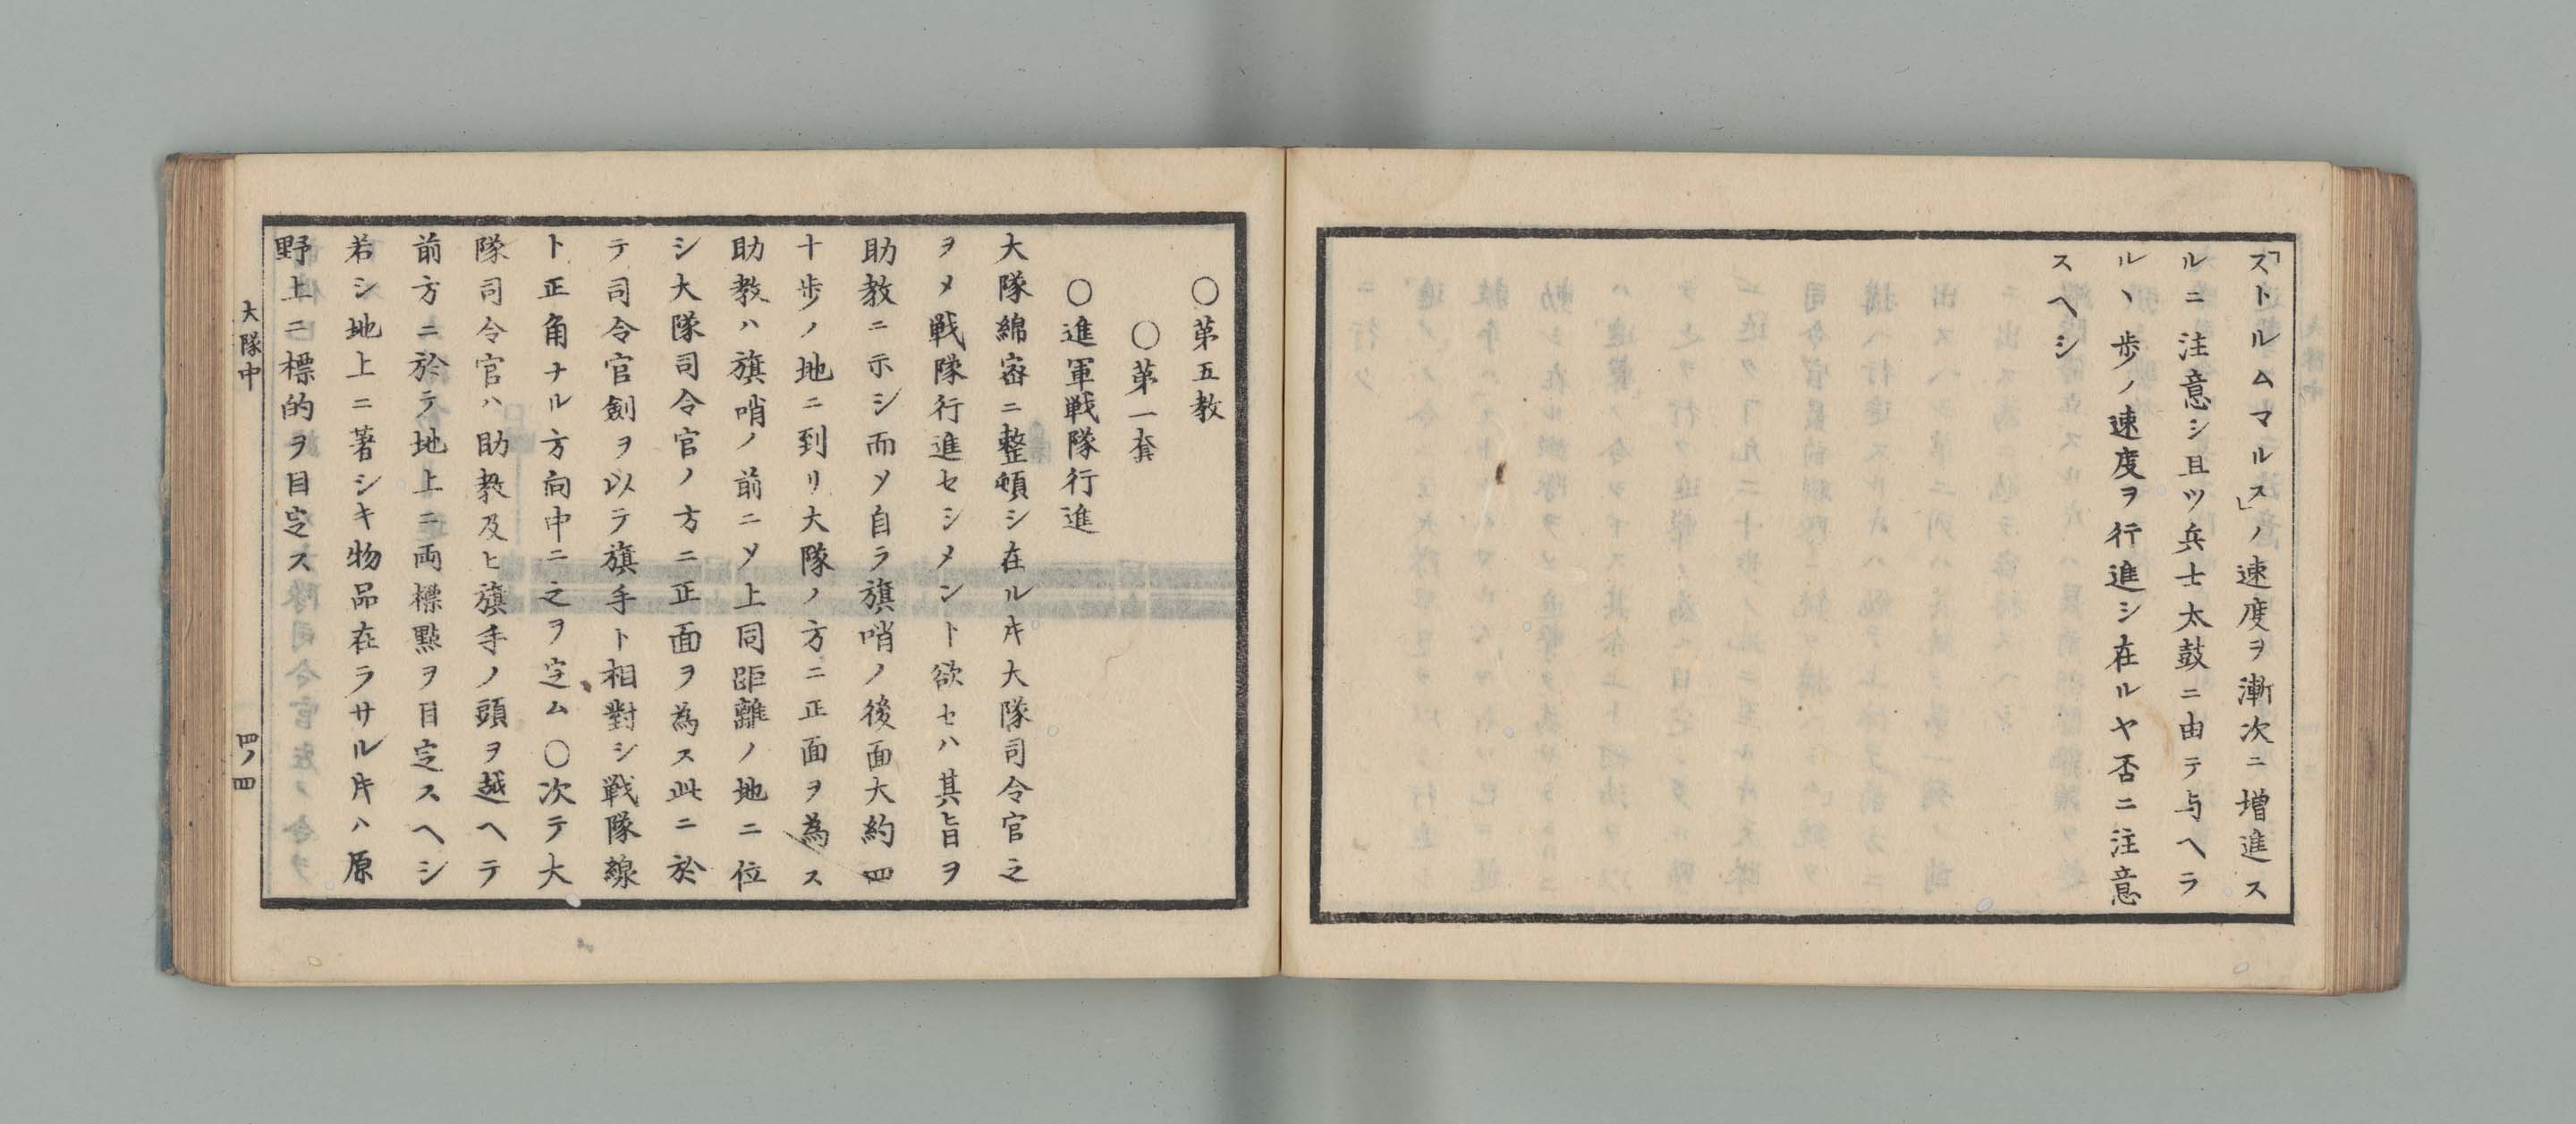 「ストルムマルス」ノ速度ヲ漸次ニ増進ス
ルニ注意シ且ツ兵士太鼓ニ由テ与ヘラ
ルヽ歩ノ速度ヲ行進シ在ルヤ否ニ注意
スヘシ
〇第五教
〇第一套
〇進軍戦隊行進
大隊綿密ニ整頓シ在ルキ大隊司令官之
ヲメ戦隊行進セシメント欲セハ其旨ヲ
助教ニ示シ而ソ自ラ旗哨ノ後面大約四
十歩ノ地ニ到リ大隊ノ方ニ正面ヲ為ス
助教ハ旗哨ノ前ニソ上同距離ノ地ニ位
シ大隊司令官ノ方ニ正面ヲ為ス此ニ於
テ司令官劍ヲ以テ旗手ト相對シ戦隊線
ト正角ナル方向中ニ之ヲ定ム〇次テ大
隊司令官ハ助教及ヒ旗手ノ頭ヲ越ヘテ
前方ニ於テ地上ニ両標點ヲ目定スヘシ
若シ地上ニ著シキ物品在ラサル片ハ原
野上ニ標的ヲ目定ス
大隊中
四ノ四